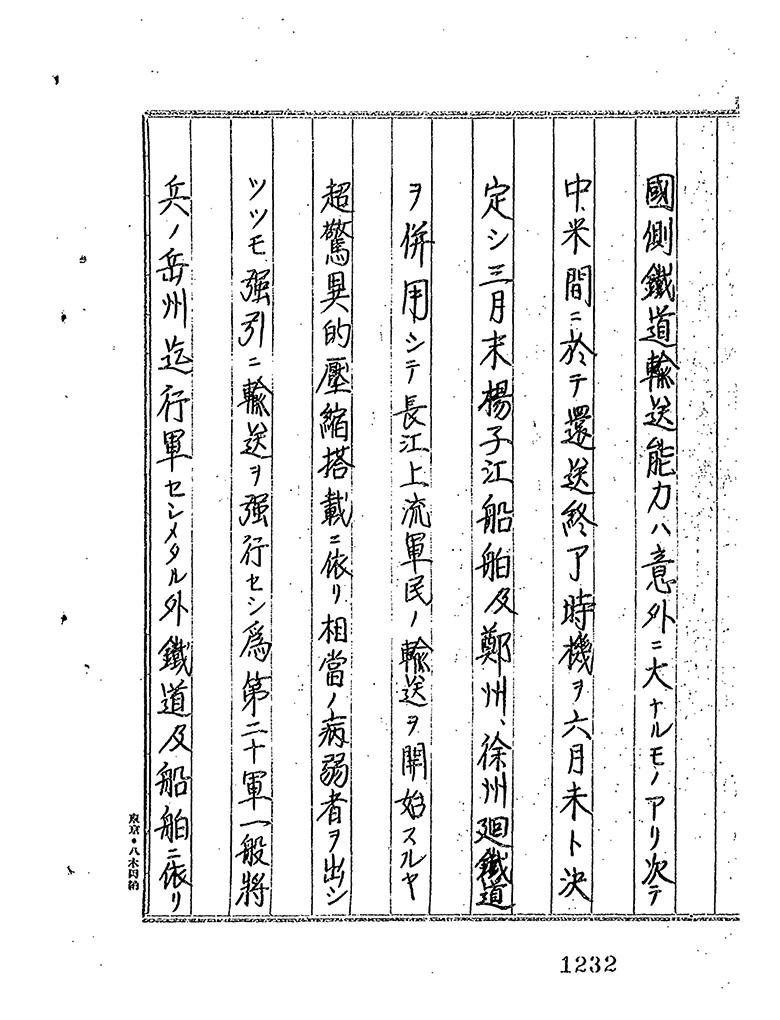 國側鐵道輸送能力ハ意外ニ大ナルモノアリ次テ
中、米間ニ於テ還送終了時機ヲ六月末ト決
定シ三月末楊子江船舶及鄭州、徐州廻鐵道
ヲ併用シテ長江上流軍民ノ輸送ヲ開始スルヤ
超驚異的壓縮搭載ニ依リ相當ノ病弱者ヲ出シ
ツツモ强引ニ輸送ヲ强行セシ爲第二十軍一般將
兵ノ岳州迄行軍セシメタル外鐵道及船舶ニ依リ
東京・八木日納
1232